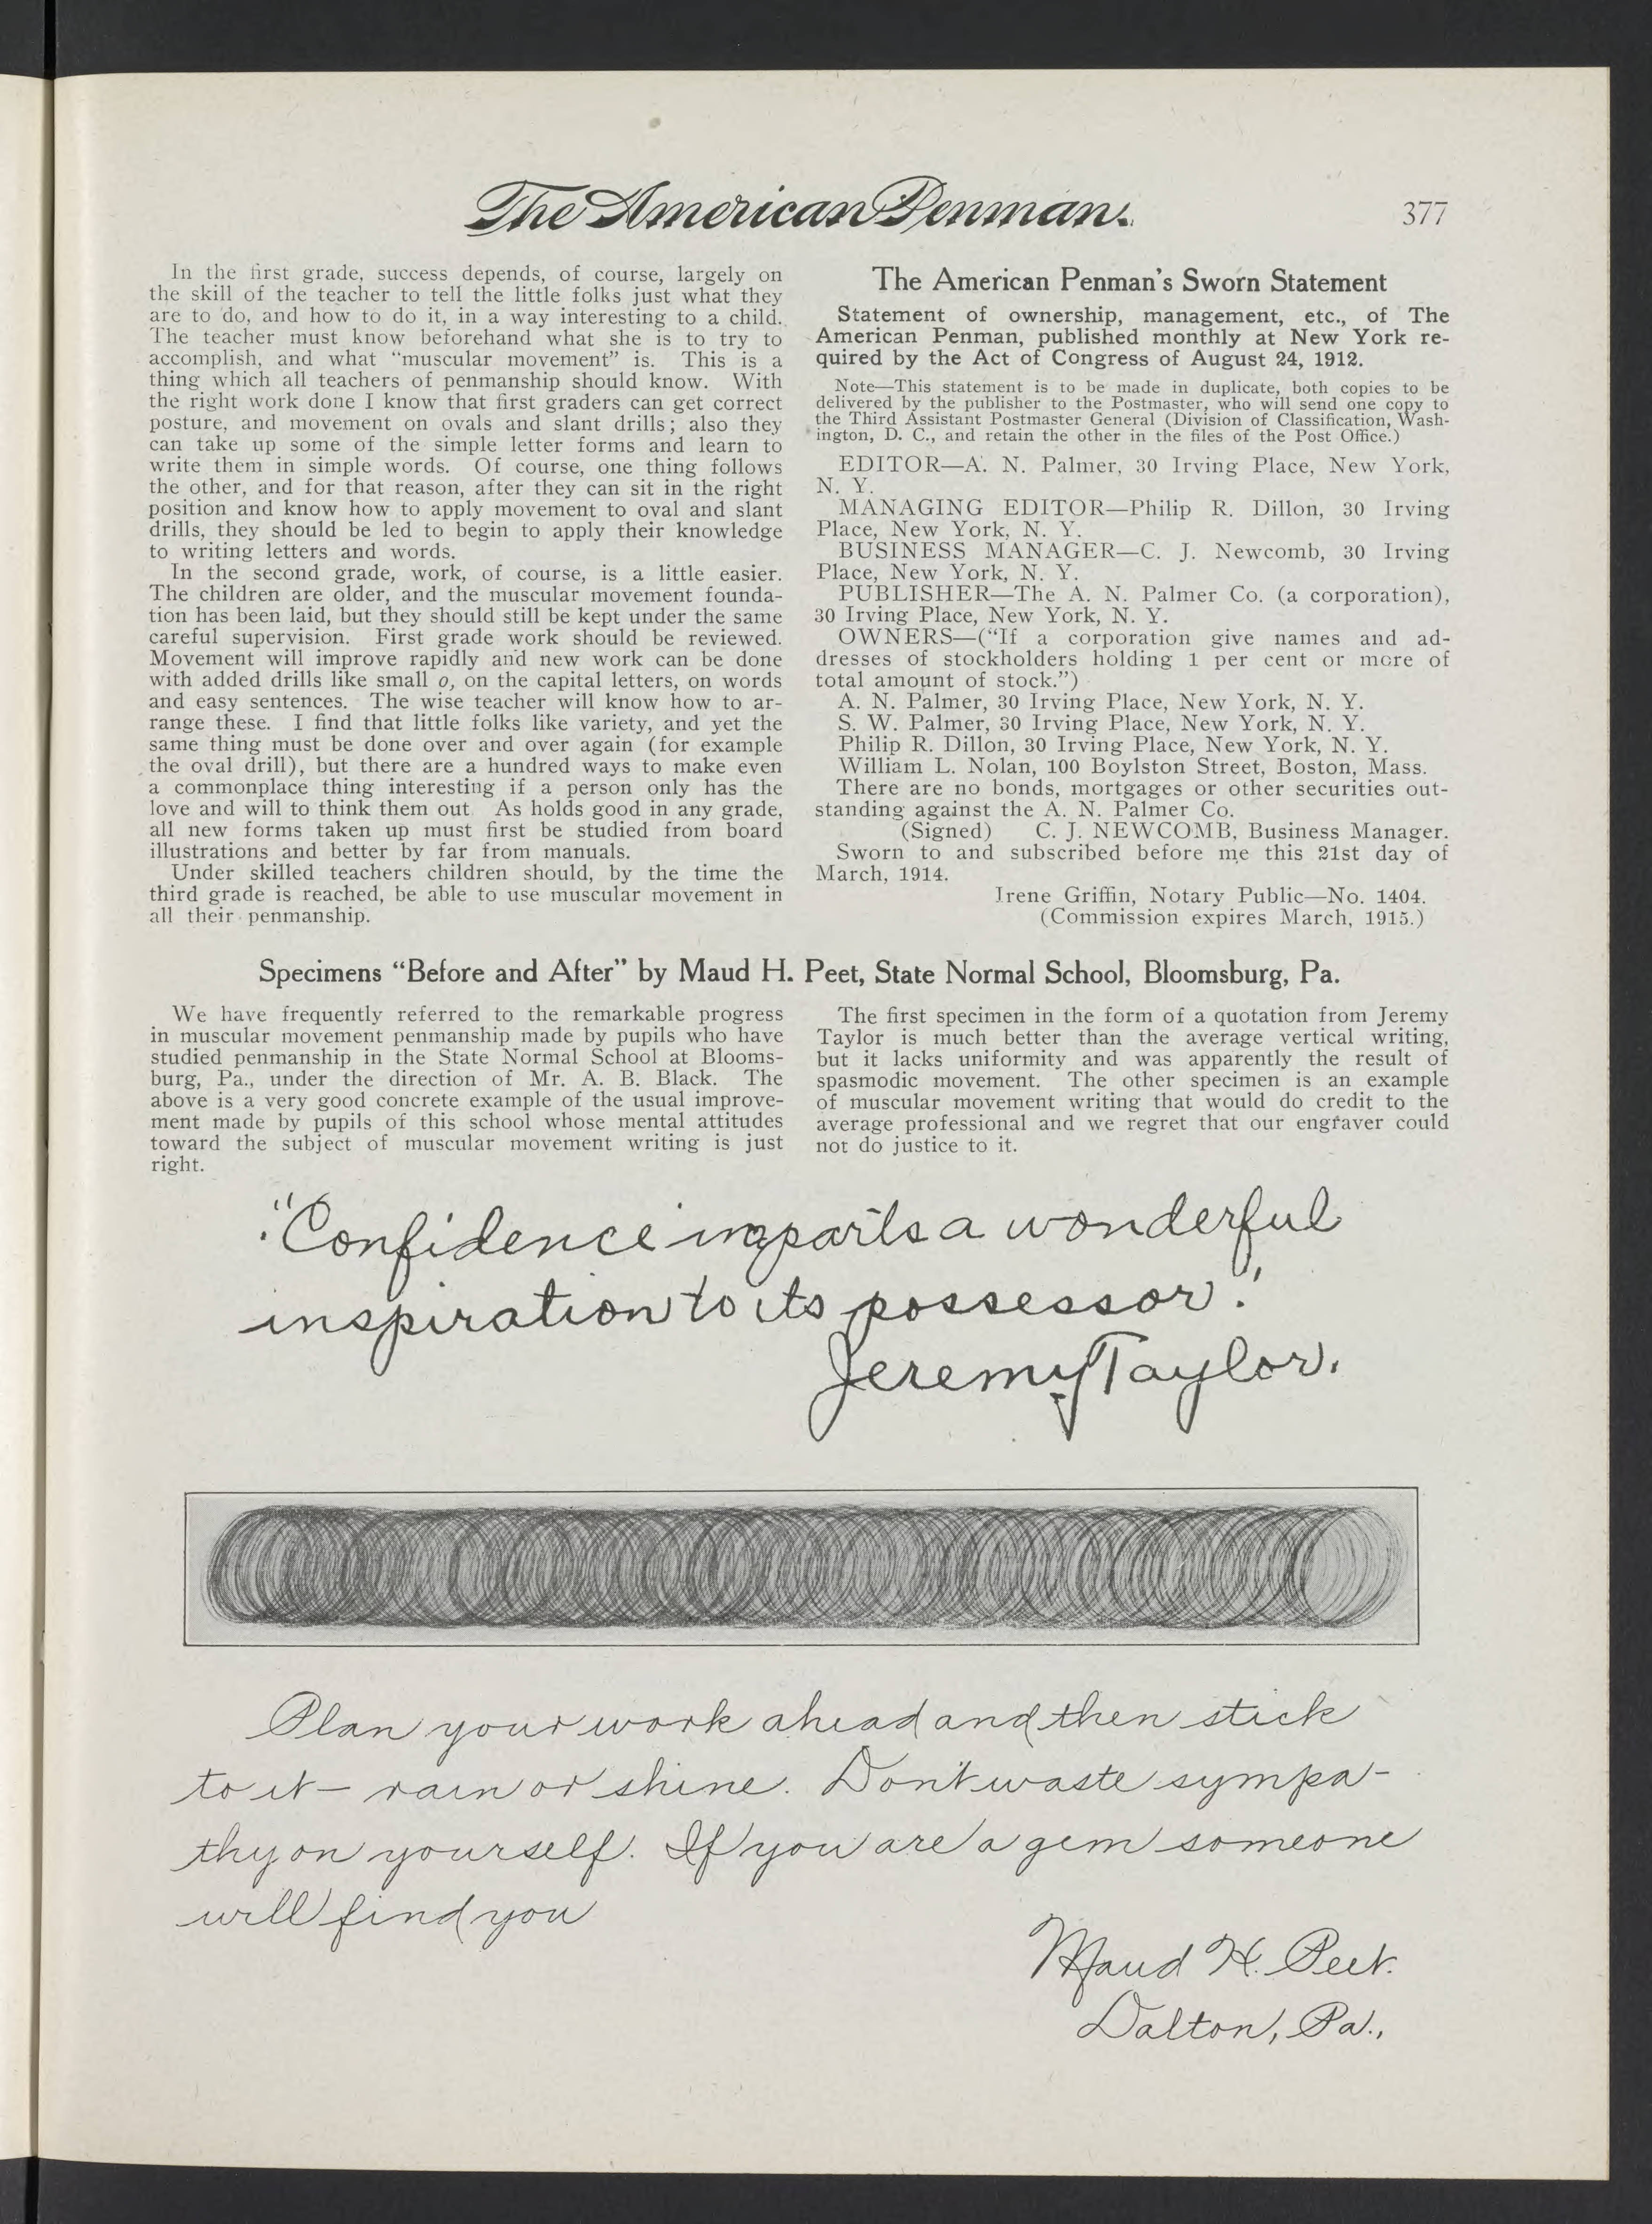 The American Penman.
377
In the first grade, success depends, of course, largely on
the skill of the teacher to tell the little folks just what they
are to do, and how to do it, in a way interesting to a child.
The teacher must know beforehand what she is to try to
accomplish, and what “muscular movement” is. This is a
thing which all teachers of penmanship should know. With
the right work done I know that first graders can get correct
posture, and movement on ovals and slant drills; also they
can take up some of the simple letter forms and learn to
write them in simple words. Of course, one thing follows
the other, and for that reason, after they can sit in the right
position and know how to apply movement to oval and slant
drills, they should be led to begin to apply their knowledge
to writing letters and words.
In the second grade, work, of course, is a little easier.
The children are older, and the muscular movement founda-
tion has been laid, but they should still be kept under the same
careful supervision. First grade work should be reviewed.
Movement will improve rapidly and new work can be done
with added drills like small o, on the capital letters, on words
and easy sentences. The wise teacher will know how to ar-
range these. I find that little folks like variety, and yet the
same thing must be done over and over again (for example
the oval drill), but there are a hundred ways to make even
a commonplace thing interesting if a person only has the
love and will to think them out As holds good in any grade,
all new forms taken up must first be studied from board
illustrations and better by far from manuals.
Under skilled teachers children should, by the time the
third grade is reached, be able to use muscular movement in
all their penmanship.
The American Penman's Sworn Statement
Statement of ownership, management, etc., of The
American Penman, published monthly at New York re-
quired by the Act of Congress of August 24, 1912.
Note—This statement is to be made in duplicate, both copies to be
delivered by the publisher to the Postmaster, who will send one copy to
the Third Assistant Postmaster General (Division of Classification, Wash-
ington, D. C., and retain the other in the files of the Post Office.)
EDITOR—A. N. Palmer, 30 Irving Place, New York,
N. Y.
MANAGING EDITOR—Philip R. Dillon, 30 Irving
Place, New York, N. Y.
BUSINESS MANAGER—C. J. Newcomb, 30 Irving
Place, New York, N. Y.
PUBLISHER—The A. N. Palmer Co. (a corporation),
30 Irving Place, New York, N. Y.
OWNERS—(“If a corporation give names and ad-
dresses of stockholders holding 1 per cent or more of
total amount of stock.”)
A. N. Palmer, 30 Irving Place, New York, N. Y.
S. W. Palmer, 30 Irving Place, New York, N. Y.
Philip R. Dillon, 30 Irving Place, New York, N. Y.
William L. Nolan, 100 Boylston Street, Boston, Mass.
There are no bonds, mortgages or other securities out-
standing against the A. N. Palmer Co.
(Signed) C. J. NEWCOMB, Business Manager.
Sworn to and subscribed before me this 21st day of
March, 1914.
Irene Griffin, Notary Public—No. 1404.
(Commission expires March, 1915.)
Specimens “Before and After” by Maud H. Peet, State Normal School, Bloomsburg, Pa.
We have frequently referred to the remarkable progress
in muscular movement penmanship made by pupils who have
studied penmanship in the State Normal School at Blooms-
burg, Pa., under the direction of Mr. A. B. Black. The
above is a very good concrete example of the usual improve-
ment made by pupils of this school whose mental attitudes
toward the subject of muscular movement writing is just
right.
The first specimen in the form of a quotation from Jeremy
Taylor is much better than the average vertical writing,
but it lacks uniformity and was apparently the result of
spasmodic movement. The other specimen is an example
of muscular movement writing that would do credit to the
average professional and we regret that our engraver could
not do justice to it.
"Confidence imparts a wonderful
inspiration to its possessor."
Jeremy Taylor.
Plan your work ahead and then stick
to it – rain or shine. Don't waste sympa-
thy on yourself. If you are a gem someone
will find you
Maud H. Peet.
Dalton, Pa.,